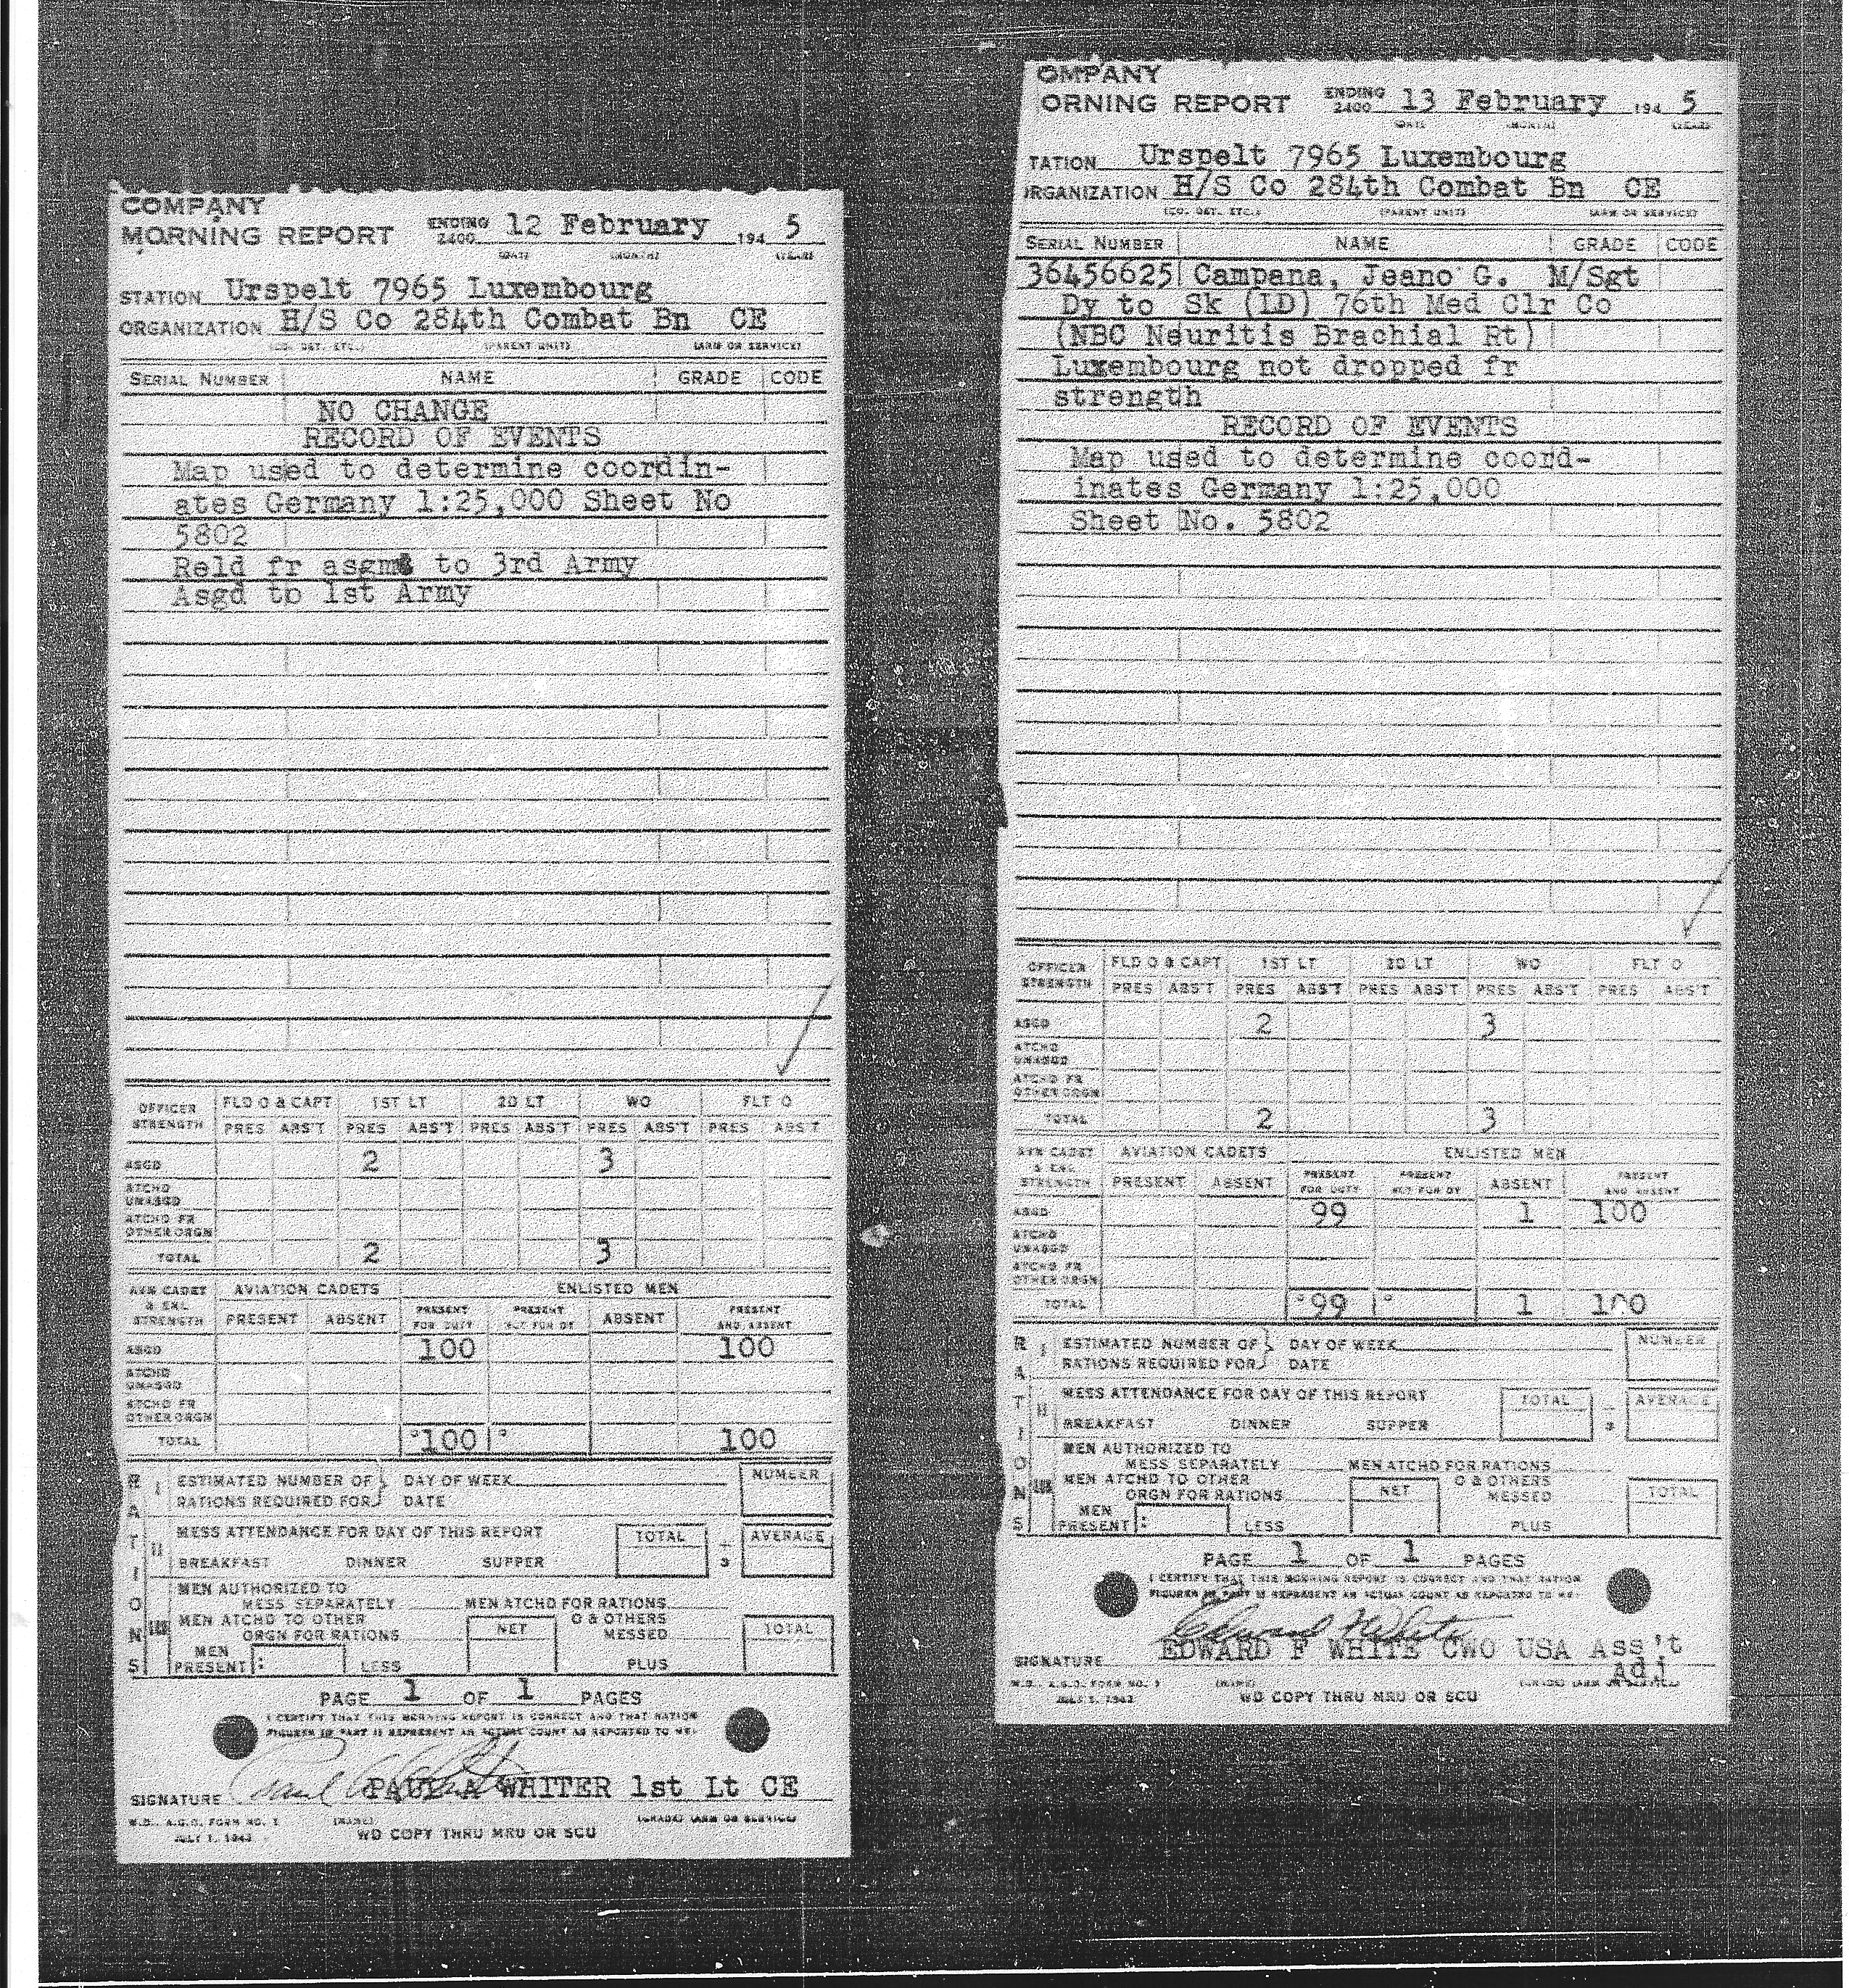 COMPANY
MORNING REPORT ENDING 2400 12 February 194 5
(DATE) (MONTH) (YEAR)
STATION Urspelt 7965 Luxembourg
ORGANIZATION H/S Co 284th Combat Bn CE
(CO. DET. ETC.) (PARENT UNIT) (ARM OR SERVICE)
SERIAL NUMBER NAME GRADE CODE
NO CHANGE
RECORD OF EVENTS
Map used to determine coordin-
ates Germany 1:25,000 Sheet No
5802
Reld fr asgmt to 3rd Army
Asgd to 1st Army
OFFICER STRENGTH FLD O & CAPT 1ST LT 2D LT WO FLT O
PRES ABS'T PRES ABS'T PRES ABS'T PRES ABS'T PRES ABS'T
ASGD 2 3
ATCHD UNASGD
ATCHD FR OTHER ORGN
TOTAL 2 3
AVN CADET & ENL STRENGTH AVIATION CADETS ENLISTED MEN
PRESENT ABSENT PRESENT FOR DUTY PRESENT NOT FOR DY ABSENT PRESENT AND ABSENT
ASGD 100 100
ATCHD UNASGD
ATCHD FR OTHER ORGN
TOTAL 100 100
RATIONS
I ESTIMATED NUMBER OF } DAY OF WEEK NUMBER
RATIONS REQUIRED FOR DATE
II MESS ATTENDANCE FOR DAY OF THIS REPORT TOTAL ÷ 3 AVERAGE
BREAKFAST DINNER SUPPER
III MEN AUTHORIZED TO
MESS SEPARATELY MEN ATCHD FOR RATIONS
MEN ATCHD TO OTHER NET O & OTHERS TOTAL
ORGN FOR RATIONS MESSED
MEN PRESENT: LESS PLUS
PAGE 1 OF 1 PAGES
I CERTIFY THAT THIS MORNING REPORT IS CORRECT AND THAT RATION
FIGURES IN PART II REPRESENT AN ACTUAL COUNT AS REPORTED TO ME:
SIGNATURE PAUL A WHITER 1st Lt CE
W.D., A.G.O. FORM NO. 1 (NAME) (GRADE) (ARM OR SERVICE)
JULY 1, 1943 WD COPY THRU MRU OR SCU
OMPANY
ORNING REPORT ENDING 2400 13 February 194 5
(DATE) (MONTH) (YEAR)
TATION Urspelt 7965 Luxembourg
RGANIZATION H/S Co 284th Combat Bn CE
(CO. DET. ETC.) (PARENT UNIT) (ARM OR SERVICE)
SERIAL NUMBER NAME GRADE CODE
36456625 Campana, Jeano G. M/Sgt
Dy to Sk (LD) 76th Med Clr Co
(NBC Neuritis Brachial Rt)
Luxembourg not dropped fr
strength
RECORD OF EVENTS
Map used to determine coord-
inates Germany 1:25,000
Sheet No. 5802
OFFICER STRENGTH FLD O & CAPT 1ST LT 2D LT WO FLT O
PRES ABS'T PRES ABS'T PRES ABS'T PRES ABS'T PRES ABS'T
ASGD 2 3
ATCHD UNASGD
ATCHD FR OTHER ORGN
TOTAL 2 3
AVN CADET & ENL STRENGTH AVIATION CADETS ENLISTED MEN
PRESENT ABSENT PRESENT FOR DUTY PRESENT NOT FOR DY ABSENT PRESENT AND ABSENT
ASGD 99 1 100
ATCHD UNASGD
ATCHD FR OTHER ORGN
TOTAL 99 1 100
RATIONS
I ESTIMATED NUMBER OF } DAY OF WEEK NUMBER
RATIONS REQUIRED FOR DATE
II MESS ATTENDANCE FOR DAY OF THIS REPORT TOTAL ÷ 3 AVERAGE
BREAKFAST DINNER SUPPER
III MEN AUTHORIZED TO
MESS SEPARATELY MEN ATCHD FOR RATIONS
MEN ATCHD TO OTHER NET O & OTHERS TOTAL
ORGN FOR RATIONS MESSED
MEN PRESENT: LESS PLUS
PAGE 1 OF 1 PAGES
I CERTIFY THAT THIS MORNING REPORT IS CORRECT AND THAT RATION
FIGURES IN PART II REPRESENT AN ACTUAL COUNT AS REPORTED TO ME:
Edward F White
SIGNATURE EDWARD F WHITE CWO USA Ass't
Adj
W.D., A.G.O. FORM NO. 1 (NAME) (GRADE) (ARM OR SERVICE)
JULY 1, 1943 WD COPY THRU MRU OR SCU